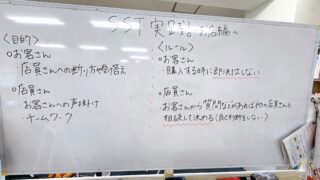 SST 実践! お店編〜
〈目的〉
○お客さん
店員さんへの断り方や受け答え
○店員さん
お客さんへの声掛け
・チームワーク
〈ルール〉
○お客さん
・購入する時に即決はしない
○店員さん
お客さんから質問などがあれば他の店員さんと
相談して決める(自己判断をしない)